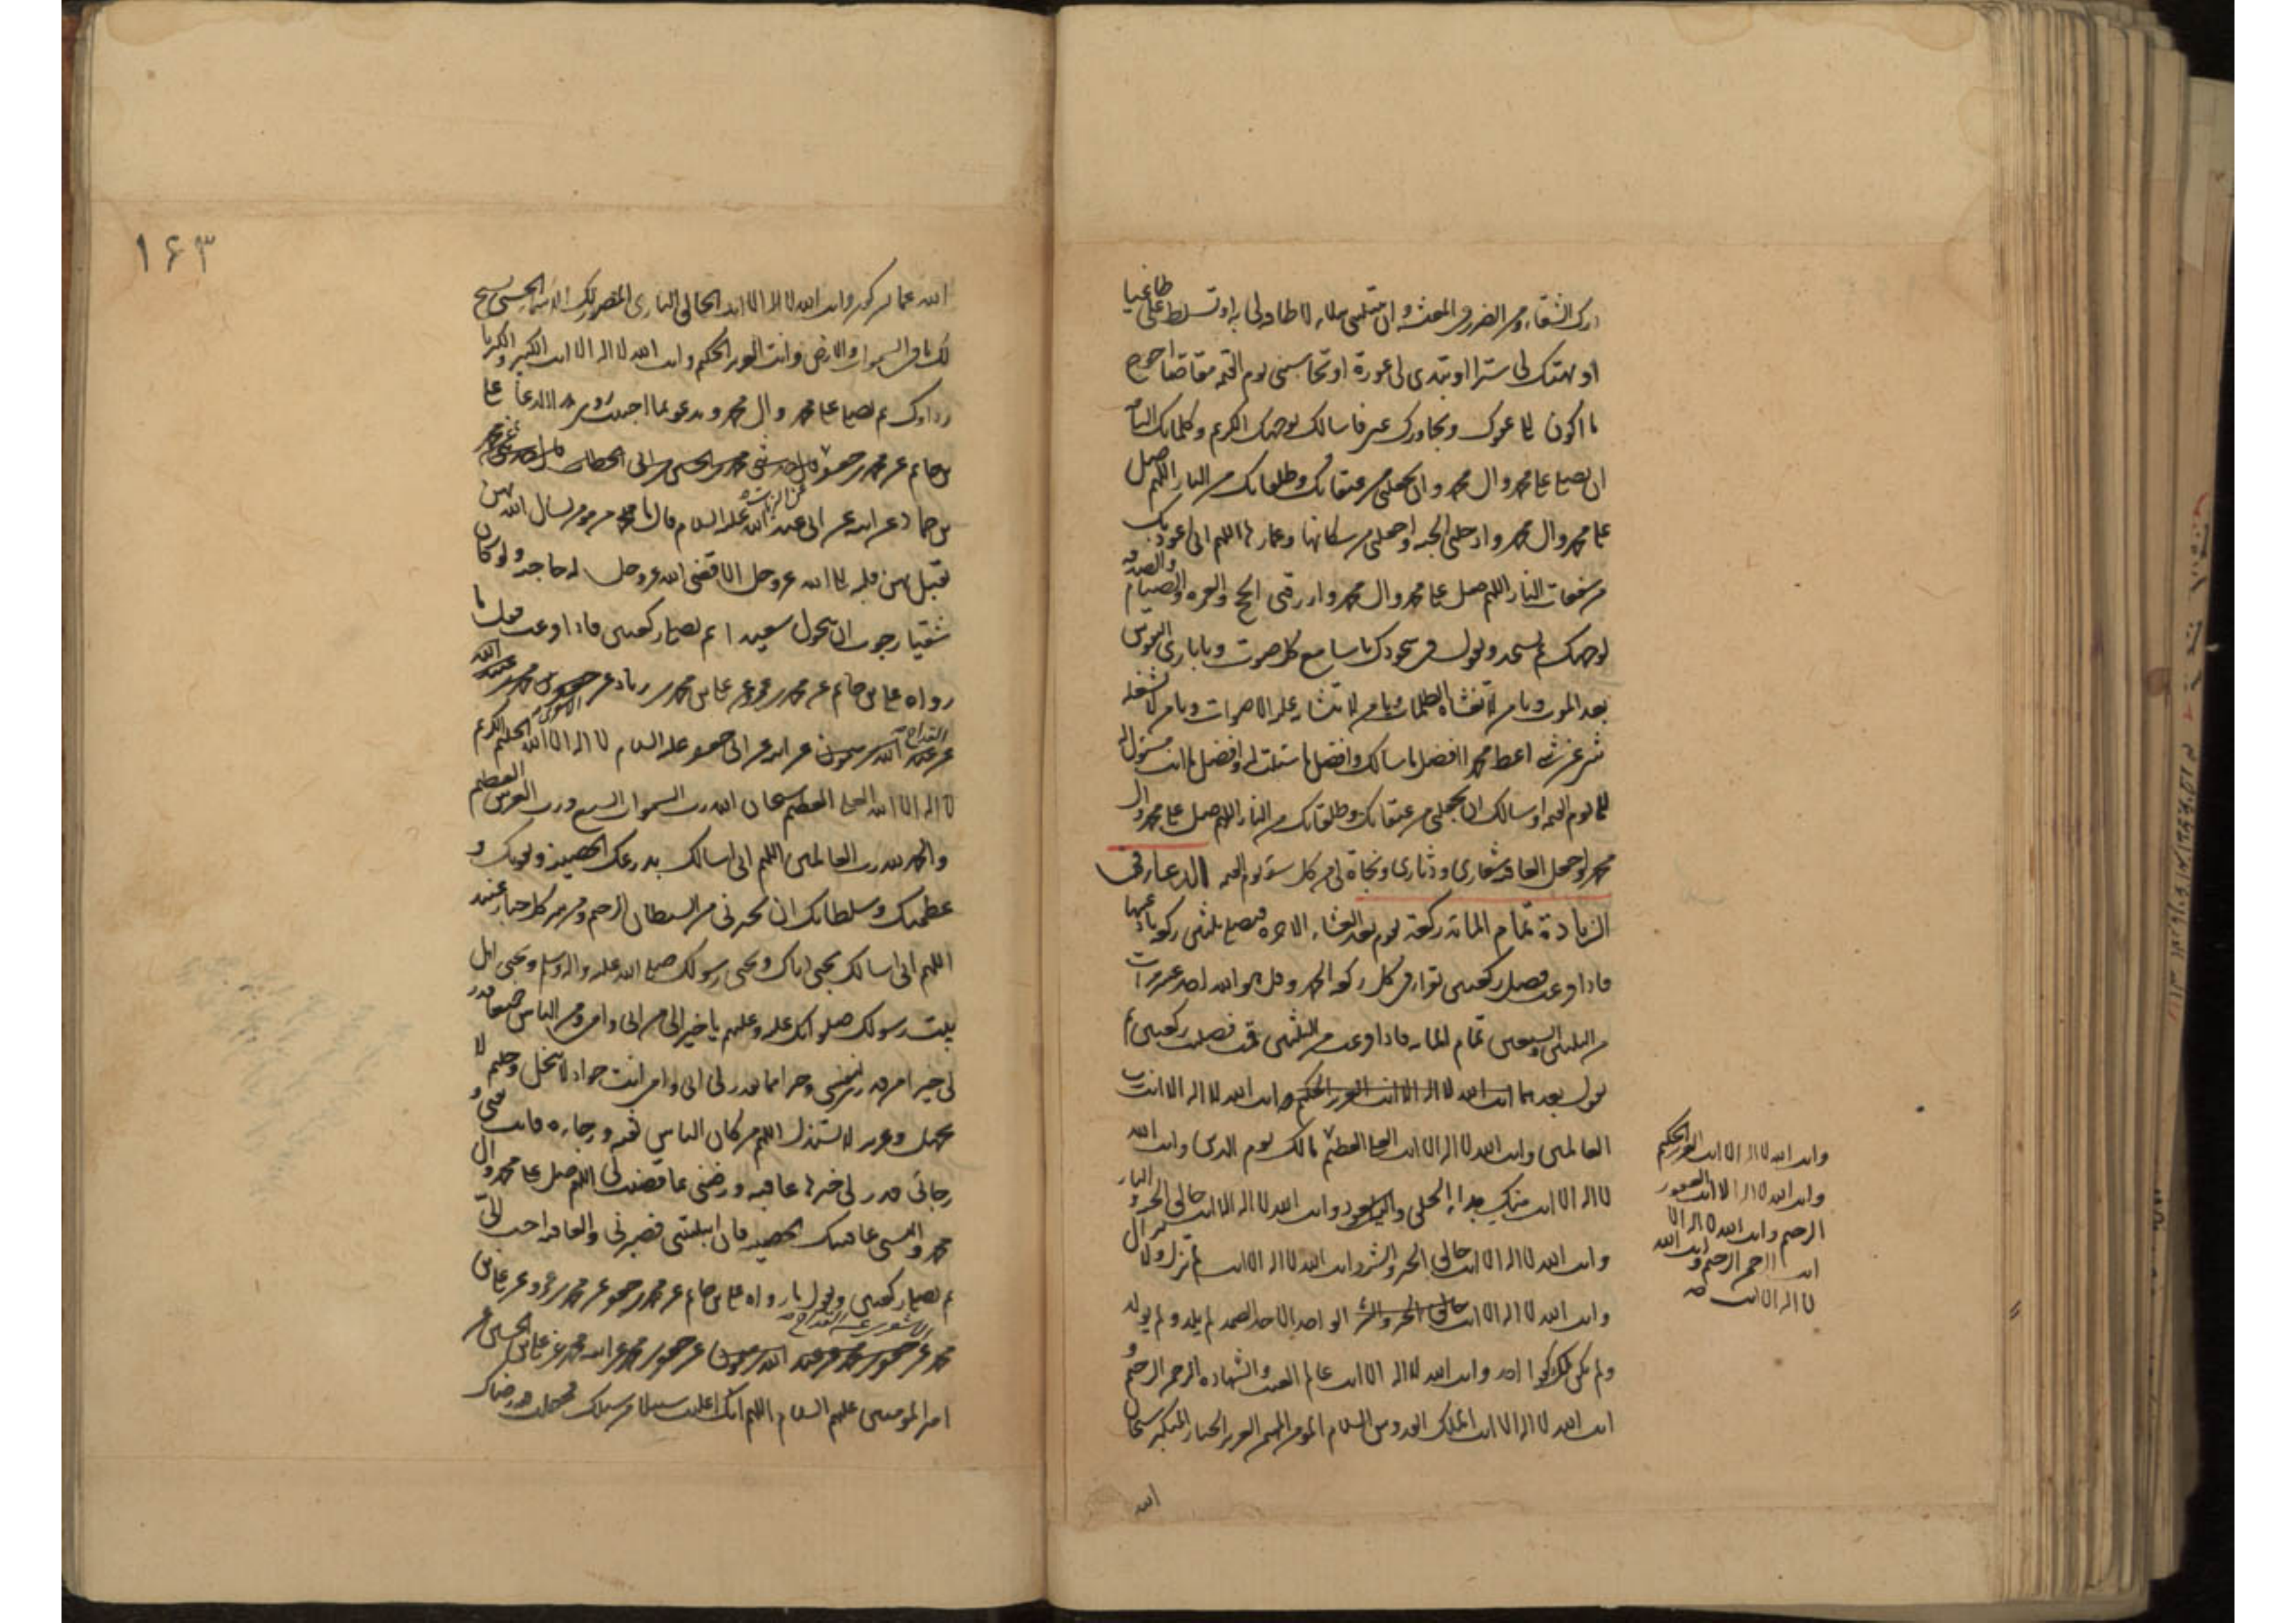 درك الشقاء ومن الضرر في المعيشة وان تبتليني ببلاء لا طاقة لي به او تسلط علي طاغيا
او تهتك لي سترا او تبدي لي عورة او تحاسبني يوم القيمة مقاصا احوج
ما اكون الى عفوك وتجاوزك عني فاسالك بوجهك الكريم وكلماتك التامة
ان تصلي على محمد وال محمد وان تجعلني من عتقائك وطلقائك من النار اللهم صل
على محمد وال محمد وادخلني الجنة واجعلني من سكانها وعمارها اللهم اني اعوذ بك
من سفعات النار اللهم صل على محمد وال محمد وارزقني الحج والعمرة والصيام والصدقة
لوجهك ثم تسجد وتقول في سجودك يا سامع كل صوت ويا بارئ النفوس
بعد الموت ويا من لا تغشاه الظلمات ويا من لا تتشابه عليه الاصوات ويا من لا يشغله
شيء عن شيء اعط محمدا افضل ما سالك وافضل ما سئلت له وافضل ما انت مسئول له
الى يوم القيمة واسالك ان تجعلني من عتقائك وطلقائك من النار اللهم صل على محمد وال
محمد واجعل العافية شعاري ودثاري ونجاة لي من كل سوء يوم القيمة الدعاء في
الزيادة تمام المائة ركعة يوم بعد العشاء الاخرة فيصلي ثلثين ركعة
فاذا فرغت فصل ركعتين تقرا في كل ركعة الحمد وقل هو الله احد عشر مرات
تمام المائة فاذا فرغت من الثلثين فصل ركعتين
تقول بعدهما انت الله لا اله الا انت العزيز الحكيم وانت الله لا اله الا انت رب
العالمين وانت الله لا اله الا انت العلي العظيم مالك يوم الدين وانت الله
لا اله الا انت منك بدا الخلق واليك يعود وانت الله لا اله الا انت خالق الجنة والنار
وانت الله لا اله الا انت خالق الخير والشر وانت الله لا اله الا انت لم تزل ولا تزال
وانت الله لا اله الا انت خالق الخير والشر الواحد الاحد الصمد لم يلد ولم يولد
ولم يكن له كفوا احد وانت الله لا اله الا انت عالم الغيب والشهادة الرحمن الرحيم و
انت الله لا اله الا انت الملك القدوس السلام المؤمن المهيمن العزيز الجبار المتكبر سبحان
الله
وانت الله لا اله الا انت العزيز الحكيم
وانت الله لا اله الا انت الغفور
الرحيم وانت الله لا اله الا
انت الرحمن الرحيم وانت الله
لا اله الا انت صح
۱۶۳
الله عما يشركون وانت الله لا اله الا انت الخالق البارئ المصور لك الاسماء الحسنى يسبح
لك ما في السموات والارض وانت العزيز الحكيم وانت الله لا اله الا انت الكبير والكبرياء
رداؤك ثم تصلي على محمد وال محمد وتدعو بما احببت
بن حاتم عن محمد بن جعفر
بن حماد عن ابيه عن ابي عبد الله عليه السلام قال ما من مؤمن يسال الله بهن
يقبل بهن قلبه الى الله عز وجل الا قضى الله عز وجل له حاجته ولو كان
شقيا رجوت ان يحول سعيدا ثم تصلي ركعتين فاذا فرغت فقل ما
رواه علي بن حاتم عن محمد بن عمرو عن علي بن محمد بن زياد عن
عن عبد الله بن ميمون عن ابيه عن ابي جعفر عليه السلام لا اله الا الله الحليم الكريم
لا اله الا الله العلي العظيم سبحان الله رب السموات السبع ورب العرش العظيم
والحمد لله رب العالمين اللهم اني اسالك بدرعك الحصينة وبقوتك و
عظمتك وسلطانك ان تجيرني من الشيطان الرجيم ومن شر كل جبار عنيد
اللهم اني اسالك بحبي اياك وبحبي رسولك صلى الله عليه واله وسلم وبحبي اهل
بيت رسولك صلواتك عليه وعليهم يا خيرا لي من ابي وامي ومن الناس جميعا قدر
لي خيرا من قدري لنفسي وخيرا مما يقدر لي ابي وامي انت جواد لا يبخل وحليم لا
يجهل وعزيز لا يستذل اللهم من كان الناس ثقته ورجاءه فانت ثقتي و
رجائي قدر لي خيرها عاقبة ورضني بما قضيت لي اللهم صل على محمد وال
محمد والبسني عافيتك الحصينة فان ابتليتني فصبرني والعافية احب الي
ثم تصلي ركعتين وتقول ما رواه علي بن حاتم عن محمد بن جعفر عن محمد بن عمرو عن علي بن
محمد عن جعفر بن محمد عن عبد الله بن ميمون عن جعفر بن محمد عن ابيه محمد عن علي بن الحسين عن
امير المؤمنين عليهم السلام اللهم انك اعلنت سبيلا من سبلك فجعلت فيه رضاك